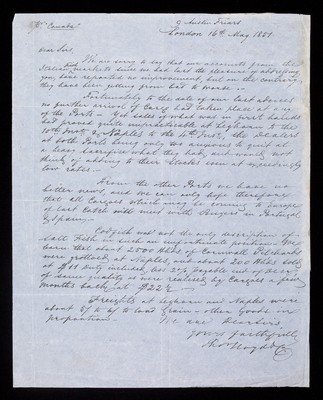 "Canada"
9 Austin Friars
London 16th May 1851
Dear Sirs,
We are sorry to say that our accounts from the
Italian Fish markets since we had last the pleasure of addressing
you, have reported no improvement, but on the contrary,
they have been getting from bad to worse.
Fortunately to the date of our last advices
no further arrival of Cargo had taken place at any
of the Ports. Yet sales of what was in first hands
had proved quite impracticable at Leghorn to the
10th Inst. & Naples to the 4th Inst., the Dealers
at both Ports being only too anxious to quit at
a heavy sacrifice what they had, and would not
think of adding to their Stocks even at exceedingly
low rates.
From the other Ports we have no
better news, and we can only hope therefore
that all Cargoes which may be coming to Europe
of last Catch will meet with Buyers in Portugal
& Spain.
Codfish is not the only description of
Salt Fish in such an unfortunate position. We
learn that about 2000 Hhds of Cornwall Pilchards
were at Naples, and about 200 Hhds sold
at $11 duty included, less 2% payable out of
of same quality as were realized by Cargoes a few
months back, at $22½
Freights at Leghorn and Naples were
about to load Grain & other goods in
proportion. We are Dear Sirs
Yours faithfully
Thos Lloyd & Co